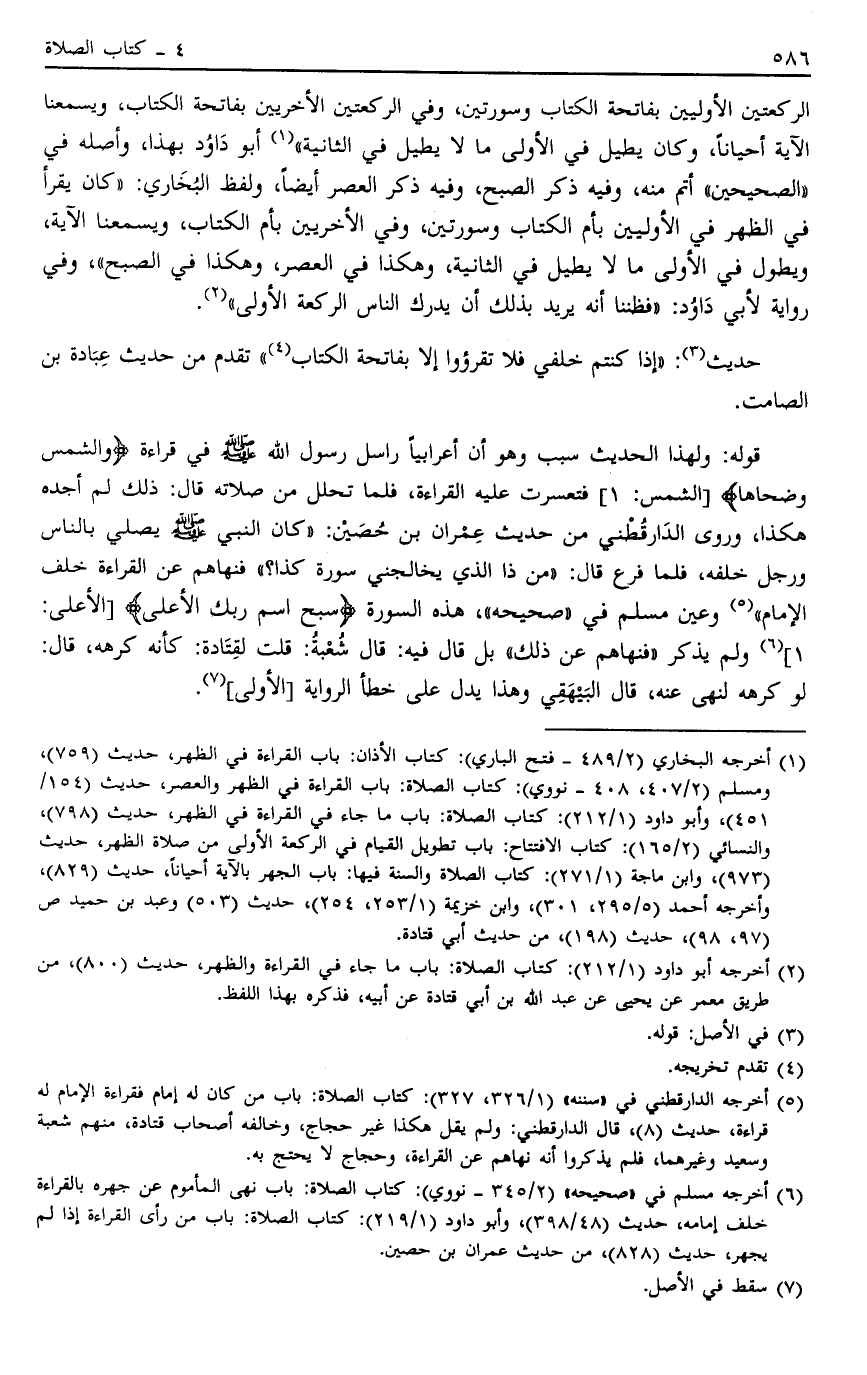 ٥٨٦ ٤ ـ كتاب الصلاة
الركعتين الأوليين بفاتحة الكتاب وسورتين، وفي الركعتين الأخريين بفاتحة الكتاب، ويسمعنا
الآية أحياناً، وكان يطيل في الأولى ما لا يطيل في الثانية»(١) أبو دَاوُد بهذا، وأصله في
«الصحيحين» أتم منه، وفيه ذكر الصبح، وفيه ذكر العصر أيضاً، ولفظ البُخَاري: «كان يقرأ
في الظهر في الأوليين بأم الكتاب وسورتين، وفي الأخريين بأم الكتاب، ويسمعنا الآية،
ويطول في الأولى ما لا يطيل في الثانية، وهكذا في العصر، وهكذا في الصبح»، وفي
رواية لأبي دَاوُد: «فظننا أنه يريد بذلك أن يدرك الناس الركعة الأولى»(٢).
حديث(٣): «إذا كنتم خلفي فلا تقرؤوا إلا بفاتحة الكتاب(٤)» تقدم من حديث عِبَادة بن
الصامت.
قوله: ولهذا الحديث سبب وهو أن أعرابياً راسل رسول الله ﷺ في قراءة ﴿والشمس
وضحاها﴾ [الشمس: ١] فتعسرت عليه القراءة، فلما تحلل من صلاته قال: ذلك لم أجده
هكذا، وروى الدَارقُطْني من حديث عِمْران بن حُصَيْن: «كان النبي ﷺ يصلي بالناس
ورجل خلفه، فلما فرغ قال: «من ذا الذي يخالجني سورة كذا؟» فنهاهم عن القراءة خلف
الإمام»(٥) وعين مسلم في «صحيحه»، هذه السورة ﴿سبح اسم ربك الأعلى﴾ [الأعلى:
١](٦) ولم يذكر «فنهاهم عن ذلك» بل قال فيه: قال شُعْبةُ: قلت لقِتَادة: كأنه كرهه، قال:
لو كرهه لنهى عنه، قال البَيْهَقِي وهذا يدل على خطأ الرواية [الأولى](٧).
(١) أخرجه البخاري (٤٨٩/٢ ـ فتح الباري): كتاب الأذان: باب القراءة في الظهر، حديث (٧٥٩)،
ومسلم (٤٠٧/٢، ٤٠٨ ـ نووي): كتاب الصلاة: باب القراءة في الظهر والعصر، حديث (١٥٤/
٤٥١)، وأبو داود (٢١٢/١): كتاب الصلاة: باب ما جاء في القراءة في الظهر، حديث (٧٩٨)،
والنسائي (١٦٥/٢): كتاب الافتتاح: باب تطويل القيام في الركعة الأولى من صلاة الظهر، حديث
(٩٧٣)، وابن ماجة (٢٧١/١): كتاب الصلاة والسنة فيها: باب الجهر بالآية أحياناً، حديث (٨٢٩)،
وأخرجه أحمد (٢٩٥/٥، ٣٠١)، وابن خزيمة (٢٥٣/١، ٢٥٤)، حديث (٥٠٣) وعبد بن حميد ص
(٩٧، ٩٨)، حديث (١٩٨)، من حديث أبي قتادة.
(٢) أخرجه أبو داود (٢١٢/١): كتاب الصلاة: باب ما جاء في القراءة والظهر، حديث (٨٠٠)، من
طريق معمر عن يحيى عن عبد الله بن أبي قتادة عن أبيه، فذكره بهذا اللفظ.
(٣) في الأصل: قوله.
(٤) تقدم تخريجه.
(٥) أخرجه الدارقطني في «سننه» (٣٢٦/١، ٣٢٧): كتاب الصلاة: باب من كان له إمام فقراءة الإمام له
قراءة، حديث (٨)، قال الدارقطني: ولم يقل هكذا غير حجاج، وخالفه أصحاب قتادة، منهم شعبة
وسعيد وغيرهما، فلم يذكروا أنه نهاهم عن القراءة، وحجاج لا يحتج به.
(٦) أخرجه مسلم في «صحيحه» (٣٤٥/٢ ـ نووي): كتاب الصلاة: باب نهى المأموم عن جهره بالقراءة
خلف إمامه، حديث (٣٩٨/٤٨)، وأبو داود (٢١٩/١): كتاب الصلاة: باب من رأى القراءة إذا لم
يجهر، حديث (٨٢٨)، من حديث عمران بن حصين.
(٧) سقط في الأصل.